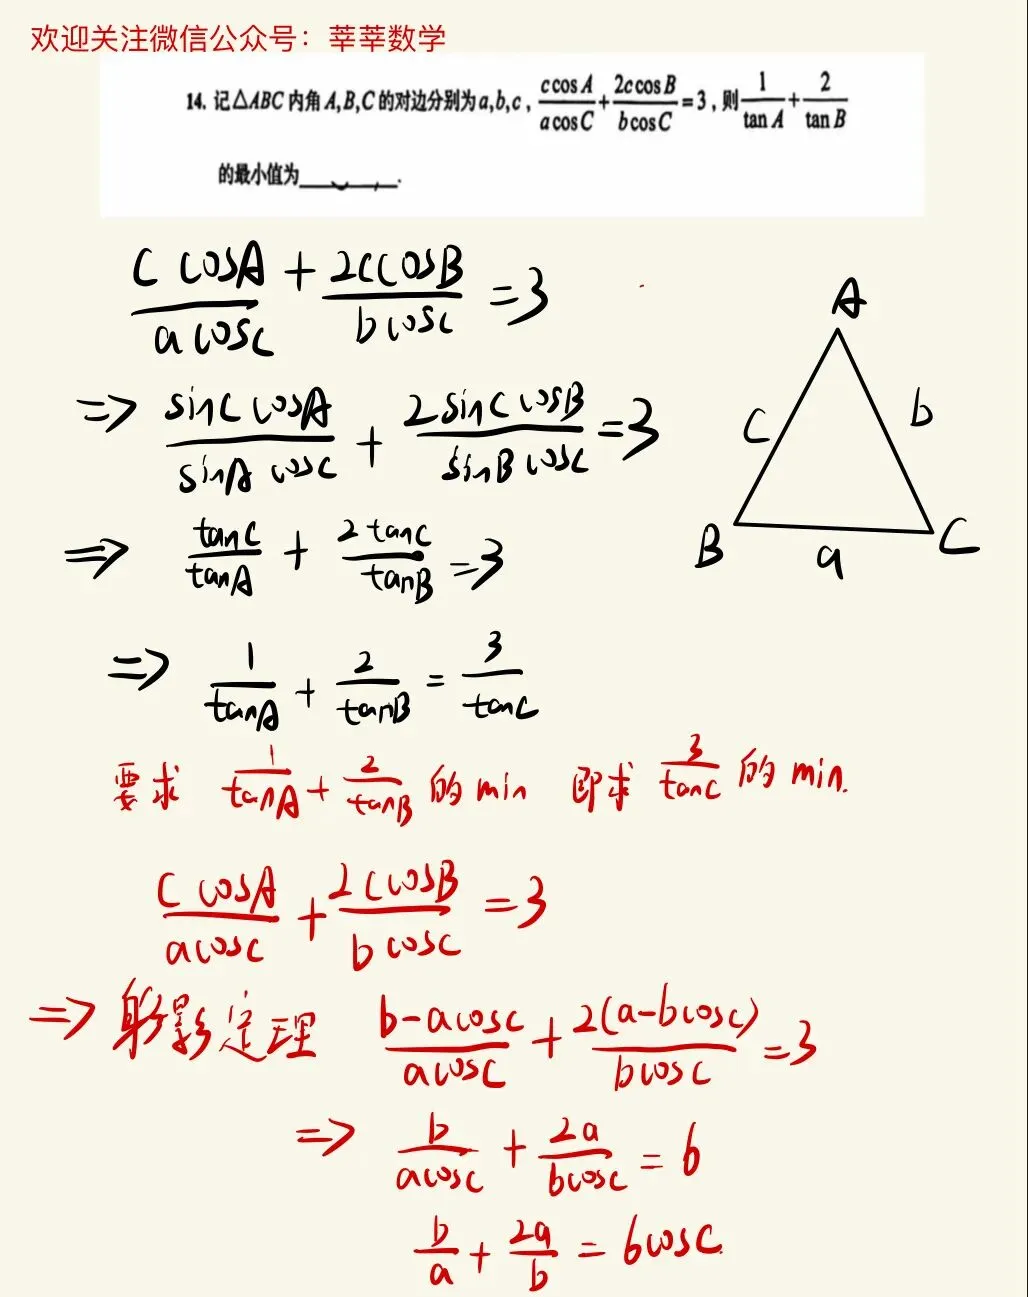 欢迎关注微信公众号：莘莘数学
14. 记△ABC内角A,B,C的对边分别为a,b,c, \frac{c\cos A}{a\cos C}+\frac{2c\cos B}{b\cos C}=3, 则\frac{1}{\tan A}+\frac{2}{\tan B}
的最小值为______.
\frac{c\cos A}{a\cos C}+\frac{2c\cos B}{b\cos C}=3
⇒ \frac{\sin C\cos A}{\sin A\cos C}+\frac{2\sin C\cos B}{\sin B\cos C}=3
⇒ \frac{\tan C}{\tan A}+\frac{2\tan C}{\tan B}=3
A
c
b
B
a
C
⇒ \frac{1}{\tan A}+\frac{2}{\tan B}=\frac{3}{\tan C}
要求 \frac{1}{\tan A}+\frac{2}{\tan B} 的min 即求 \frac{3}{\tan C} 的min.
\frac{c\cos A}{a\cos C}+\frac{2c\cos B}{b\cos C}=3
⇒ 射影定理 \frac{b-a\cos C}{a\cos C}+\frac{2(a-b\cos C)}{b\cos C}=3
⇒ \frac{b}{a\cos C}+\frac{2a}{b\cos C}=6
\frac{b}{a}+\frac{2a}{b}=6\cos C